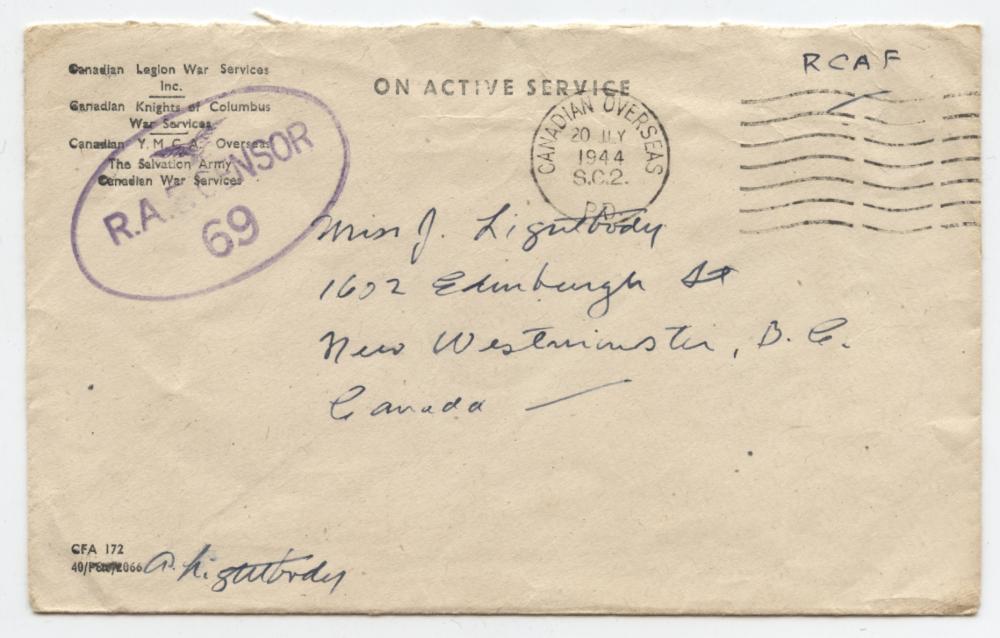 Canadian Legion War Services
Inc.
Canadian Knights of Columbus
War Services
Canadian Y.M.C.A. Overseas
The Salvation Army
Canadian War Services
R.A.F. CENSOR
69
ON ACTIVE SERVICE
RCAF
CANADIAN OVERSEAS
20 JLY
1944
S.C.2.
P.D.
Miss J. Lightbody
1602 Edinburgh St
New Westminster, B.C.
Canada
CFA 172
A. Lightbody